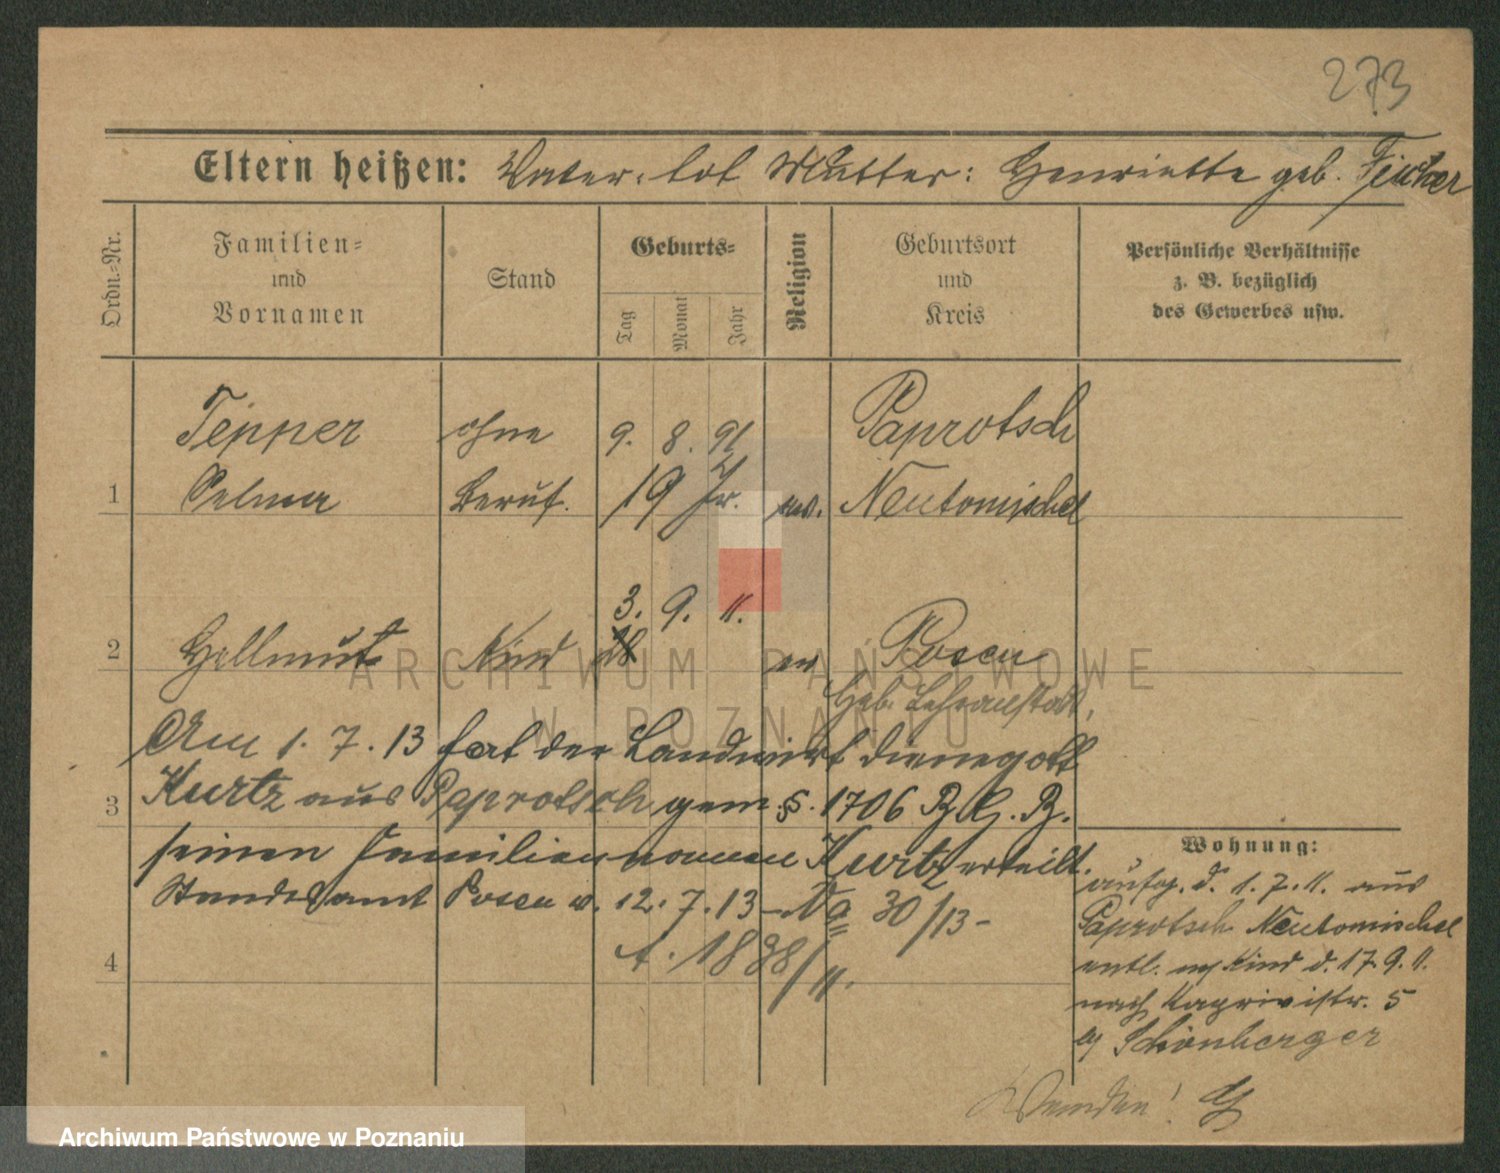 273
Eltern heißen: Vater: tot Mutter: Henriette geb. Fischer
Ordn.-Nr.
Familien- und Vornamen
Stand
Geburts-
Tag
Monat
Jahr
Religion
Geburtsort und Kreis
Persönliche Verhältnisse
z. B. bezüglich
des Gewerbes usw.
Tepper ohne 9. 8. 91 Paprotsch
1 Selma Beruf. 19 Jr. ev. Neutomischel
3. 9. 11.
2 Hellmut Kind 28 ev Posen
Heb. Lehranstalt,
Am 1. 7. 13 hat der Landwirt Dienegott
3 Kurtz aus Paprotsch gem. §. 1706 B. G. B.
seinen Familiennamen Kurtz erteilt.
Standesamt Posen v. 12. 7. 13 - Na 30/13 -
4 A. 1838/11.
Wohnung:
aufg. d. 1. 7. 11. aus
Paprotsch Neutomischel
entl. m/ Kind d. 17. 9. 11.
nach Kaprivistr. 5
b/ Schönberger
Wenden!
ARCHIWUM PAŃSTWOWE
W POZNANIU
Archiwum Państwowe w Poznaniu